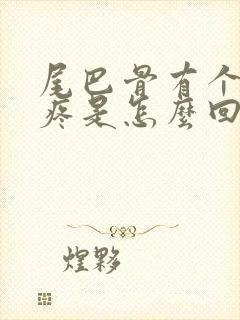 尾巴骨有个
疼是怎麽回
煌夥